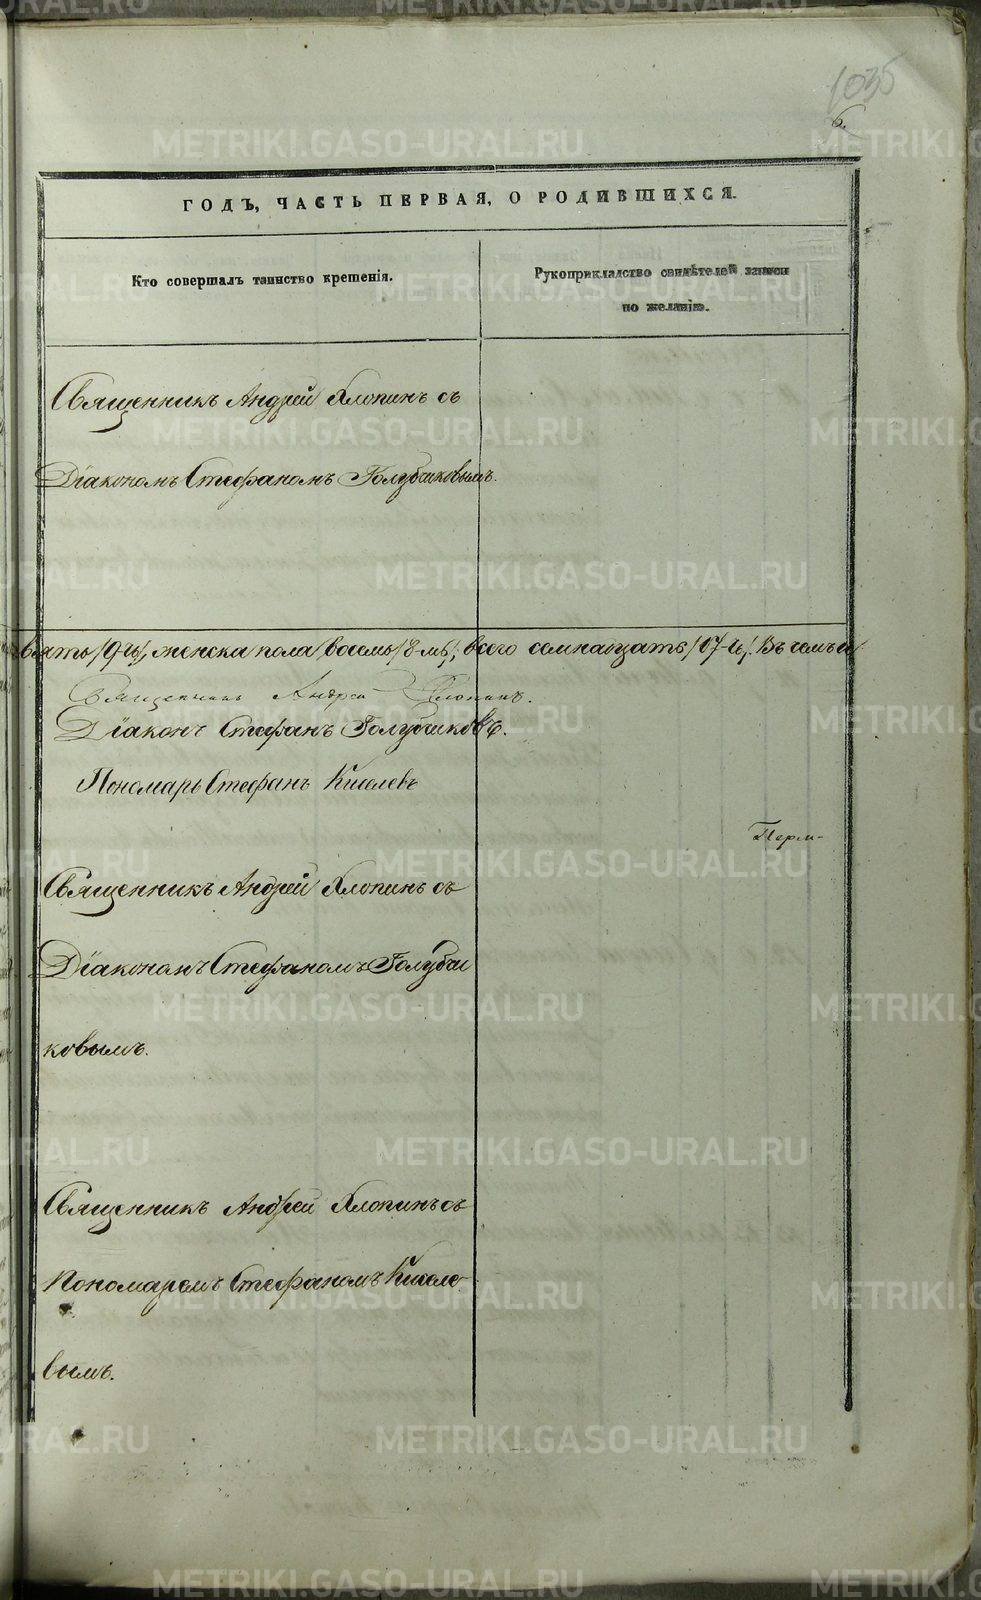 1035
6.
ГОДЪ, ЧАСТЬ ПЕРВАЯ, О РОДИВШИХСЯ.
Кто совершалъ таинство крещенія.
Рукоприкладство свидѣтелей записи
по желанію.
Священникъ Андрей Хлопинъ съ
Діакономъ Стефаномъ Голубчиковымъ.
вять /9-ть/, женска пола восемь /8-мь/, всего семнадцать /17-ть/. Въ чемъ и
Священникъ Андрей Хлопинъ.
Діаконъ Стефанъ Голубчиковъ.
Пономарь Стефанъ Киселевъ
Перм-
Священникъ Андрей Хлопинъ съ
Діакономъ Стефаномъ Голубчи
ковымъ.
Священникъ Андрей Хлопинъ съ
Пономаремъ Стефаномъ Киселе
вымъ.
METRIKI.GASO-URAL.RU